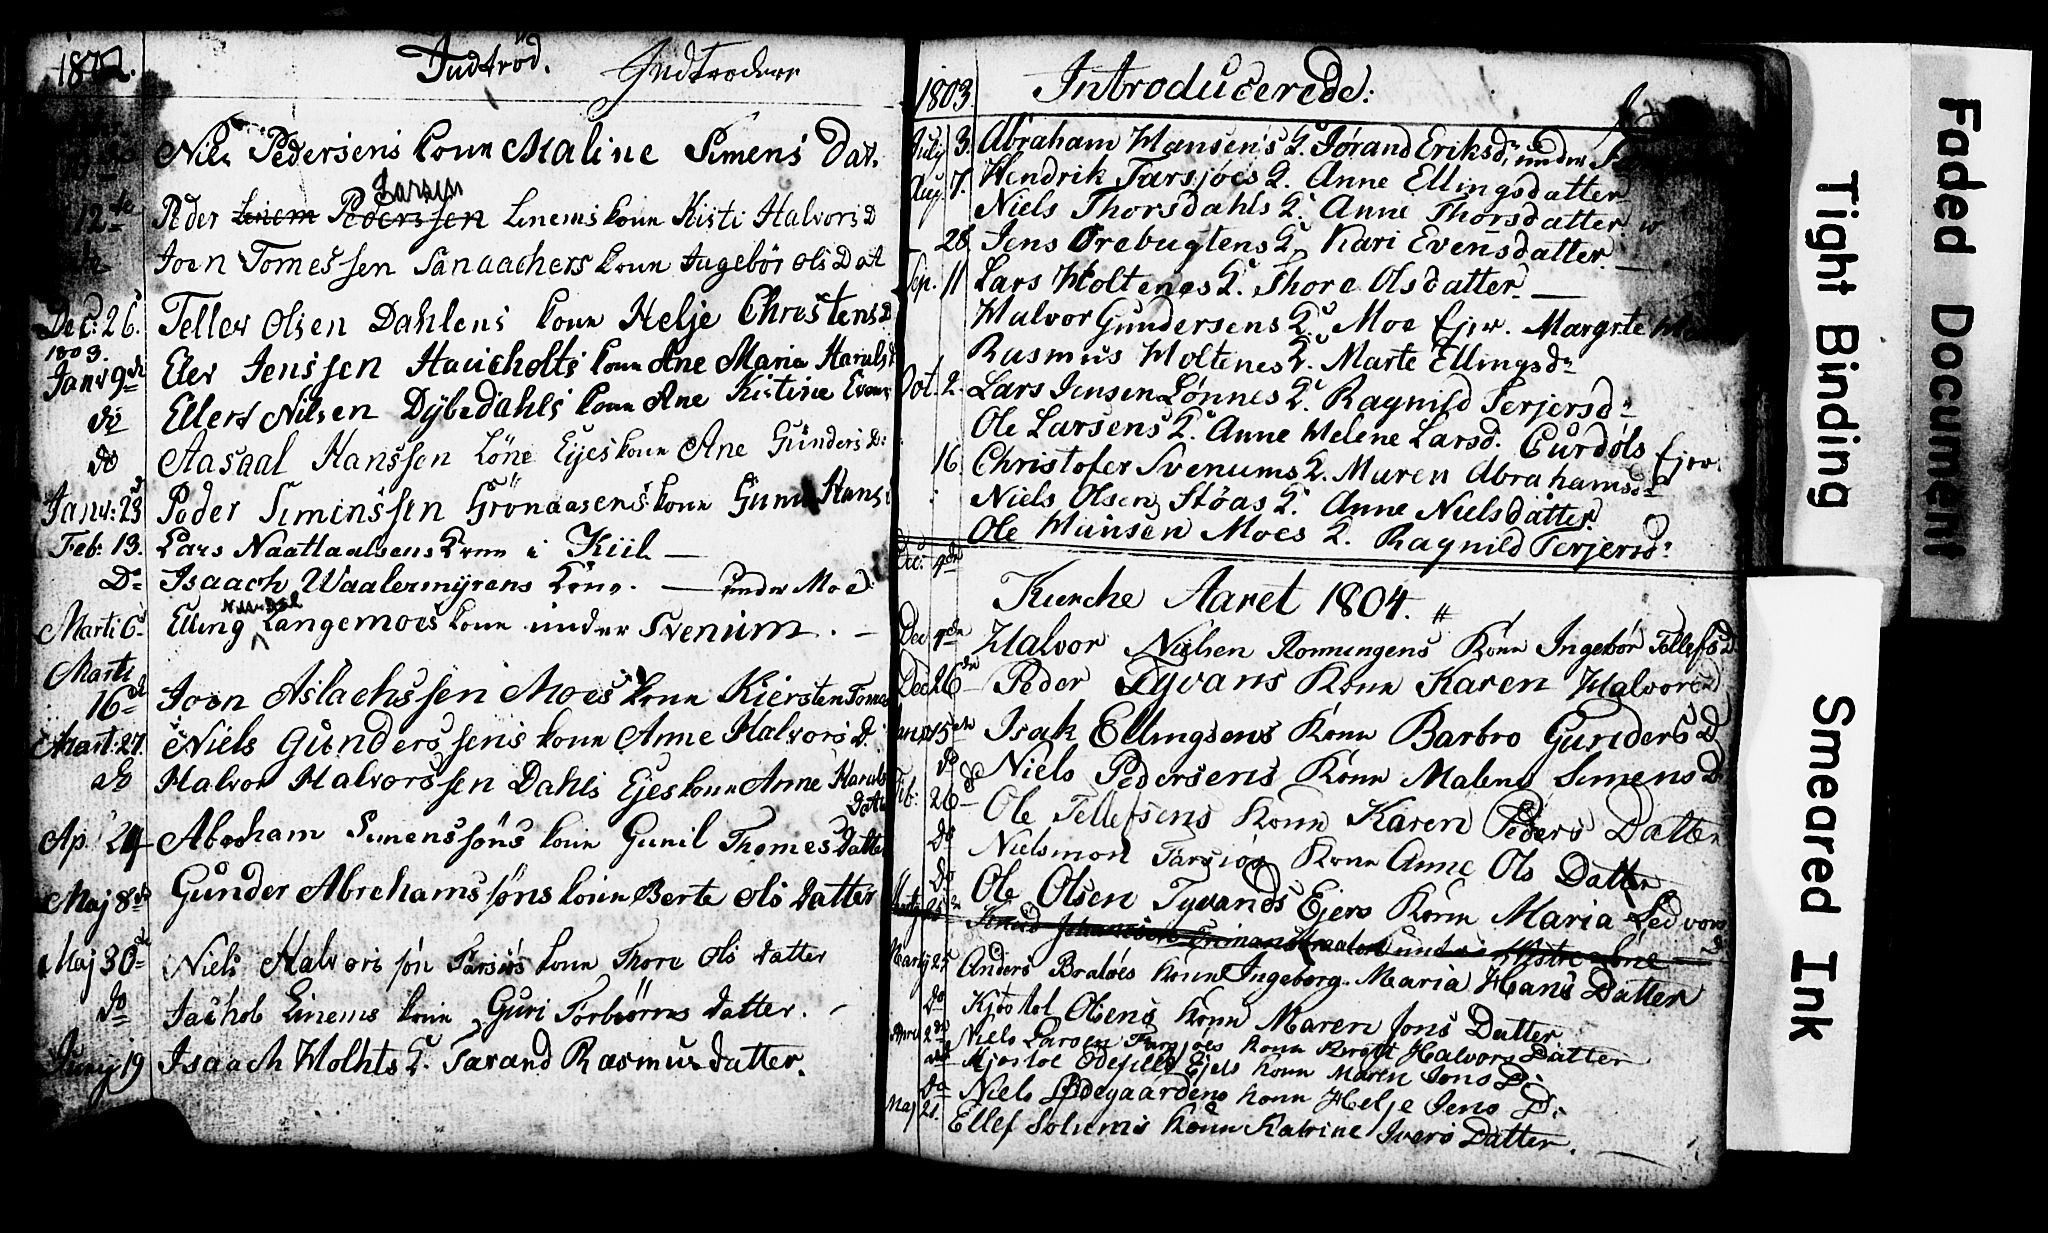 1802. Indtrød. Indtrodere
Nils Pedersens konn Maline Simens Dat.
Larsen
12te Peder Linem Pederssen Linems konn Kisti Halvors D
Joen Tomessen konn Ingebör Ols Dat
Dec: 26. Tellev Olsen Dahlens konn Helje Christens D
1803.
Janr 9de Elev Jenssen konn Ane Maria Haralsd
do Ellert Nilsen Dÿbedahls konn Ane Kistine Evens
do Aasaal Hanssen Löne Ejes konn Ane Günders D:
Janr: 23 Peder Simenssen Grönaasens konn Hans
Feb: 13. Lars Konn i Kiil —
Do Isaach Waalermÿrens Kone. — under Moe
Marti 6 Elling Langemoes konn under Svenum. —
Marti
16d Joen Aslachssen Moes konn Kiersten Tomes
Mart: 27. Niels Günderssens konn Anne Halvors D.
do Halvor Halvorssen Dahls Ejes konn Anne Harals
Dater
Ap. 24 Abraham Simenssöns konn Gunil Thomes Datter
Maj 8de Günder Abrehamssöns konn Berte Ols Datter
Maj 30 Niels Halvors søn Tarsiös konn Thore Ols Datter
do Jachob Linems konn Guri Torbiörns Datter. -
Junij 19 Isaach Holhts Q. Tarand Rasmus datter.
1803. Introducerede:
July 3. Abraham Hansens Q. Jørand Eriksd. under
Aug. 7. Hendrik Tarsjöes Q. Anne Ellingsdatter
Niels Thorsdahls Q. Anne Thorsdatter
28. Jens Ørebugtens Q. Kari Evensdatter. —
Sep. 11 Lars Holtenes Q. Thore Olsdatter —
Halvor Gundersens Q. Moe Ejer. Margrte
Rasmus Holtenes Q. Marte Ellingsd
Oct. 2. Lars Jensen Lønnes Q. Ragnild Terjersd
Ole Larsens Q. Anne Helene Larsd. Curdøls Ejer.
16. Christofer Svenums Q. Maren Abrahamsd
Niels Olsen Støas Q. Anne Nielsdatter.
Ole Hansen Moes Q. Ragnild Terjersd
Dec: 4de
Kirche Aaret 1804. "
Dec 4de Halvor Nielsen Ronningens Konn Ingebör Tellefs D.
Dec 26de Peder Tyvans Konn Karen Halvors D
Janr 15de Isak Ellingsens Konn Barbro Gunders D
do Niels Pedersens Konn Malene Simens D
Feb: 26d Ole Tellefsens Konn Karen Peders Datter
do Nielsmon Tarsiös Konn Anne Ols Datter
do Ole Olsen Tyvands Ejers Konn Maria Ledvors
D
Marty 25 Anders Braløes Konn Ingeborg Maria Hans Datter
do Kjøstol Olsens Konn Maren Jons Datter
Apri 2de Niels Larsen Tarsjöes Konn Birgit Halvors Datter
Kjøstol Ejers Konn Maren Jons D.
do Niels Ødegaardens Konn Helje Jens D.
Maj 21. Ellef Solums Konn Katrine Ivers Datter.
Faded Document
Tight Binding
Smeared Ink